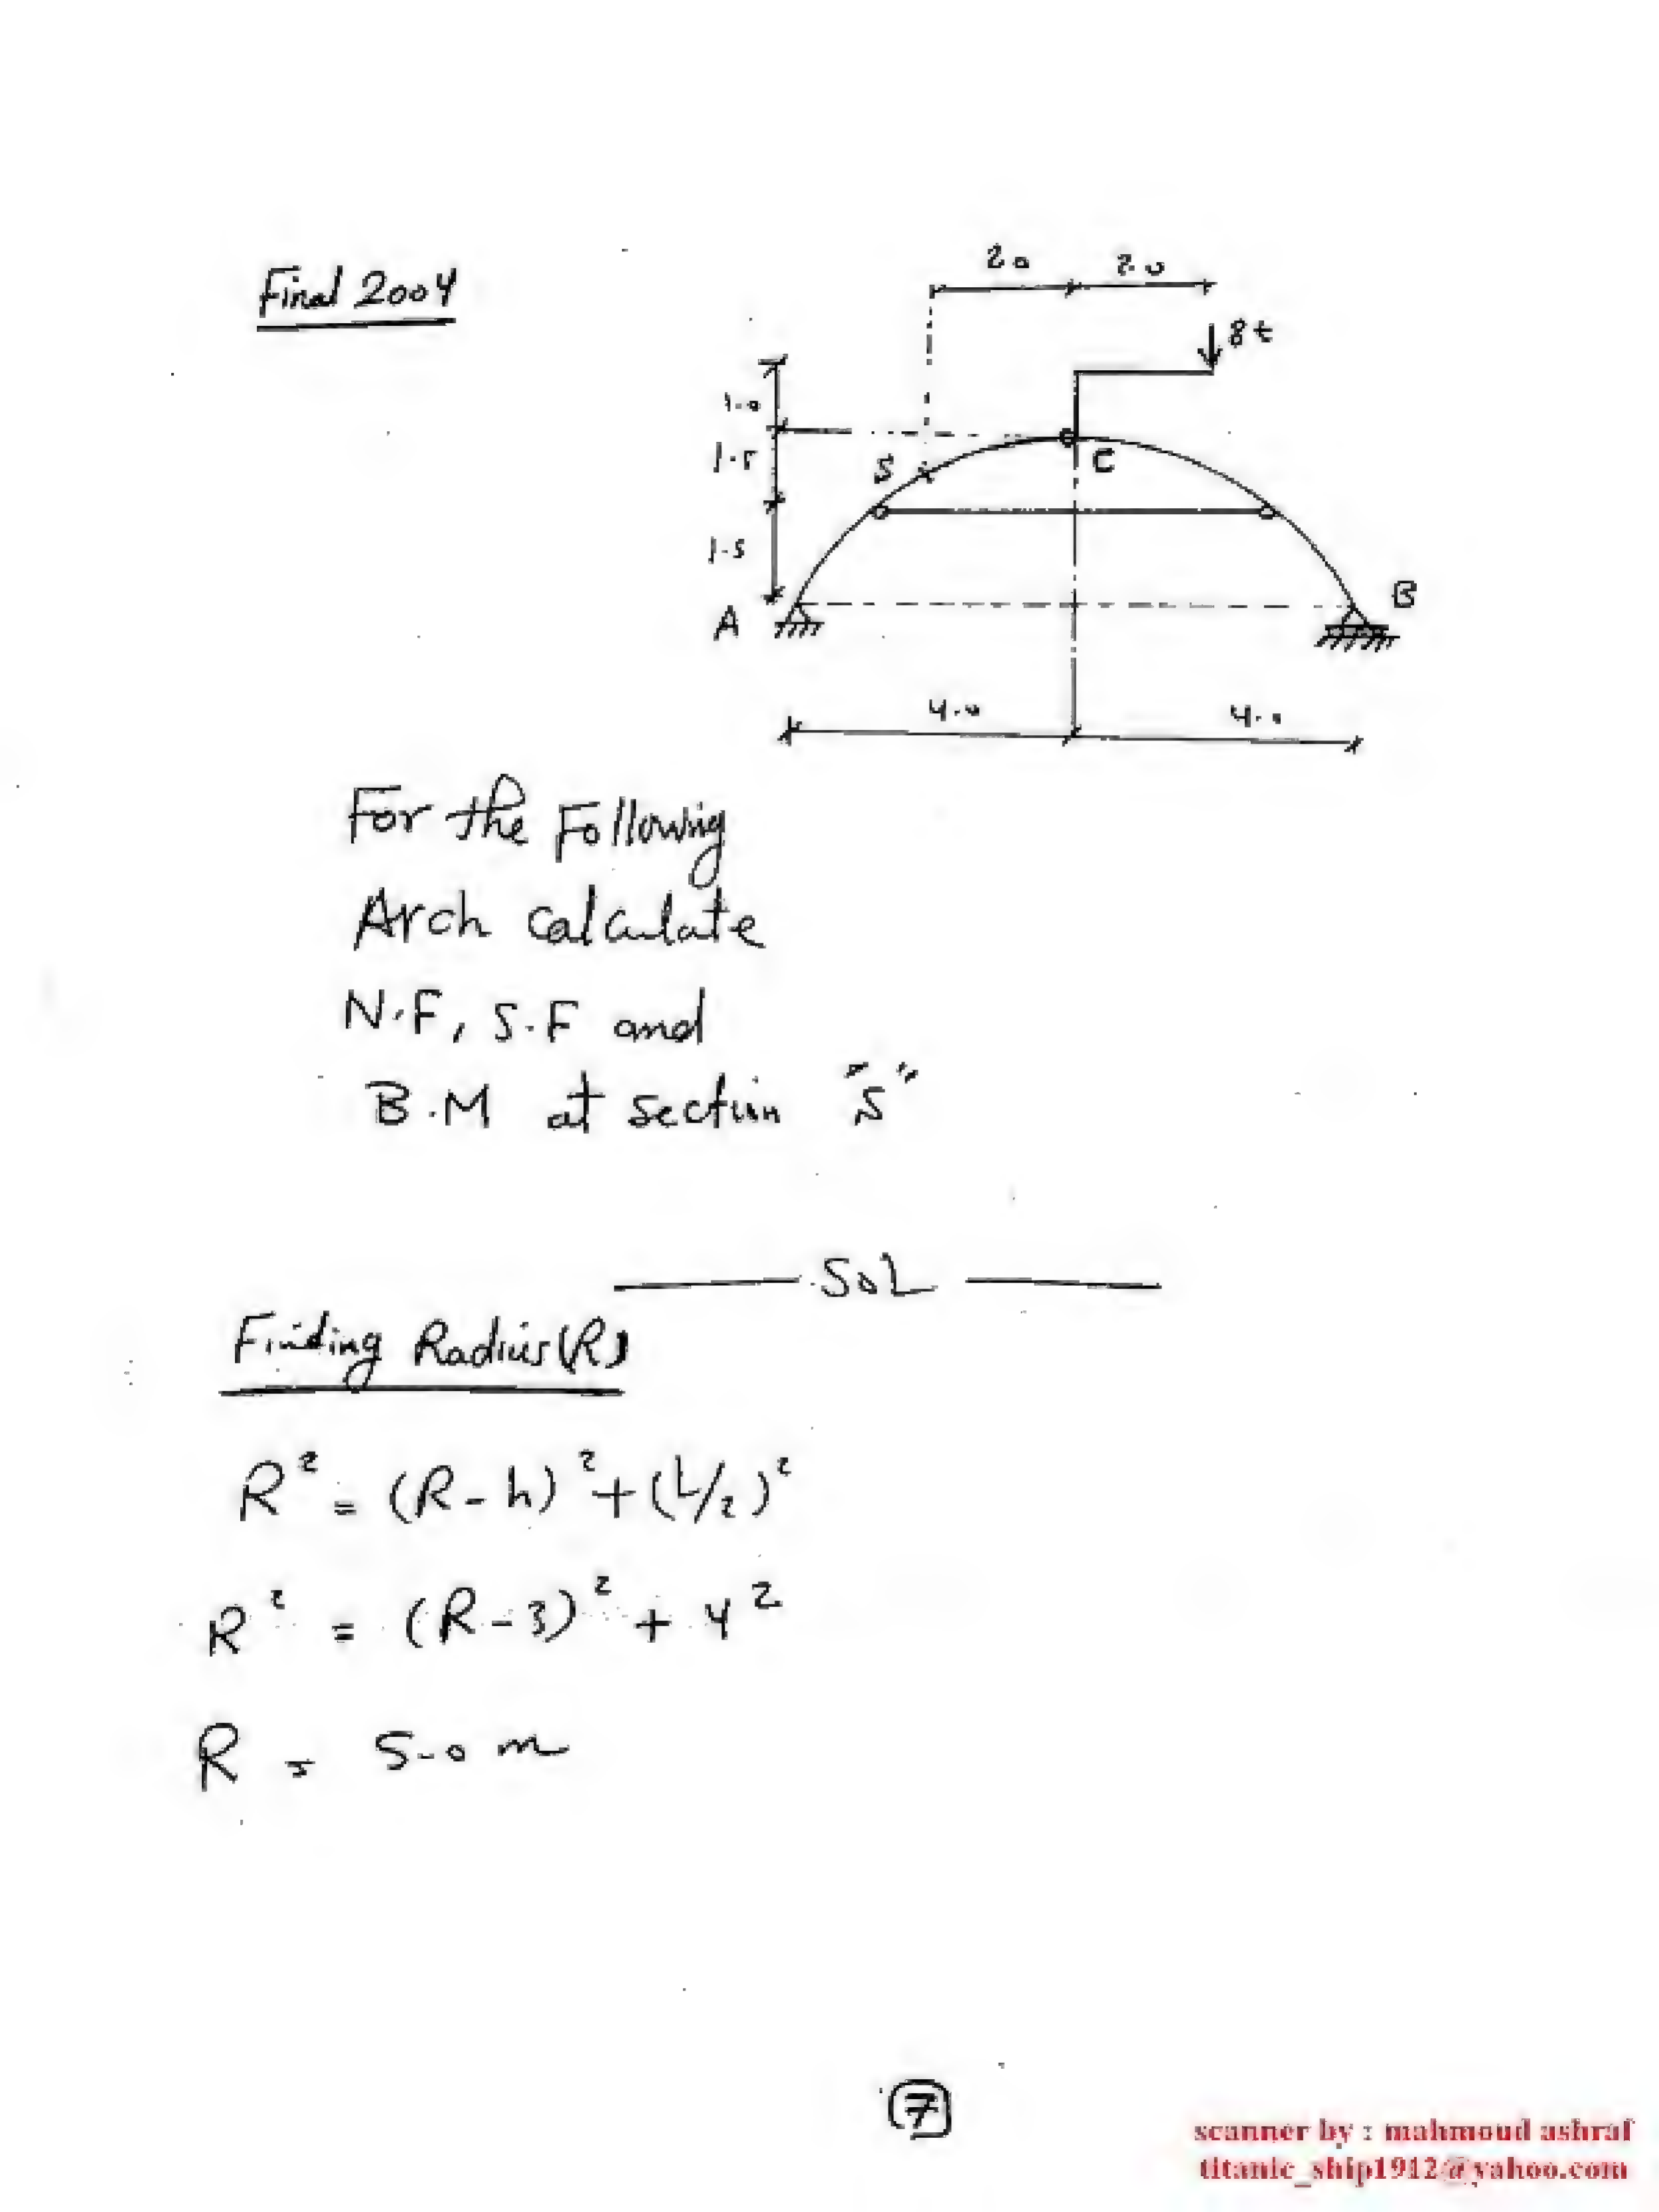 Final 2004
2.0 2.0
8t
1.0
1.5
S
C
1.5
A
B
4.0 4.0
For the Following
Arch calculate
N.F, S.F and
B.M at section "S"
SOL
Finding Radius (R)
R² = (R - h)² + (L/2)²
R² = (R - 3)² + 4²
R = 5.0 m
7
scanner by : mahmoud ashraf
titanic_ship1912@yahoo.com